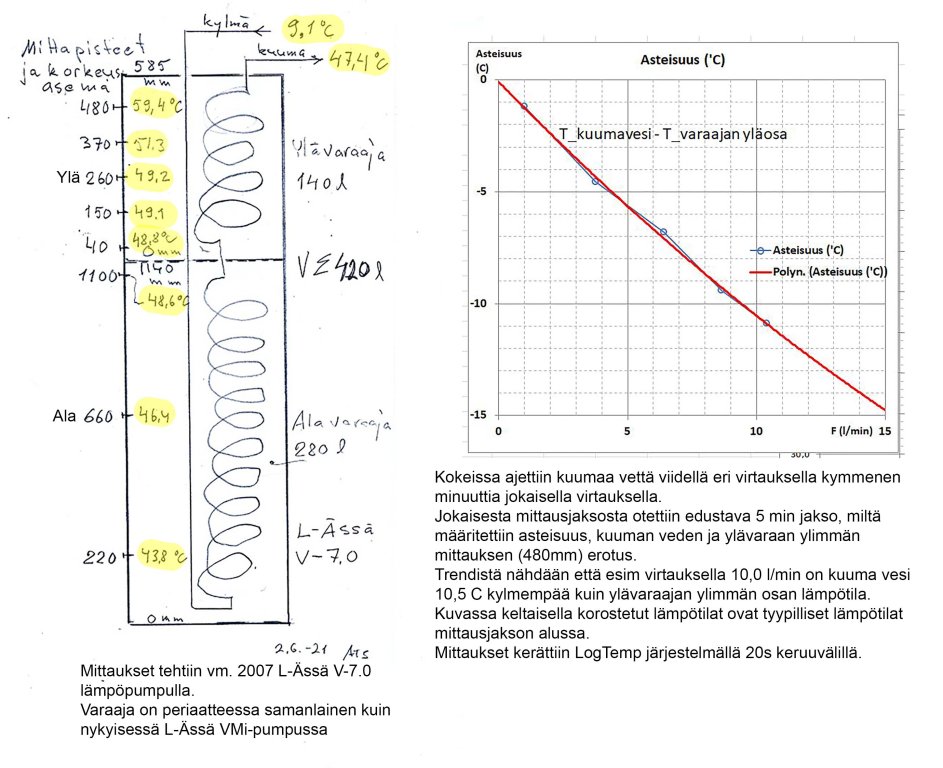 kylmä
9,1°C
kuuma
47,4°C
Mittapisteet
ja korkeus
asema
585
mm
480
59,4°C
370
51.3
Ylä 260
49,2
150
49.1
40
48,8°C
0 mm
1140
mm
1100
48,6°C
Ala 660
46,4
220
43,8°C
0 mm
Ylävaraaja
140 l
VΣ420 l
Alavaraaja
280 l
L-Ässä
V-7,0
2.6.-21
Mittaukset tehtiin vm. 2007 L-Ässä V-7.0
lämpöpumpulla.
Varaaja on periaatteessa samanlainen kuin
nykyisessä L-Ässä VMi-pumpussa
Asteisuus
(C)
Asteisuus ('C)
T_kuumavesi - T_varaajan yläosa
Asteisuus ('C)
Polyn. (Asteisuus ('C))
0
-5
-10
-15
0
5
10
F (l/min)
15
30,0
Kokeissa ajettiin kuumaa vettä viidellä eri virtauksella kymmenen
minuuttia jokaisella virtauksella.
Jokaisesta mittausjaksosta otettiin edustava 5 min jakso, miltä
määritettiin asteisuus, kuuman veden ja ylävaraan ylimmän
mittauksen (480mm) erotus.
Trendistä nähdään että esim virtauksella 10,0 l/min on kuuma vesi
10,5 C kylmempää kuin ylävaraajan ylimmän osan lämpötila.
Kuvassa keltaisella korostetut lämpötilat ovat tyypilliset lämpötilat
mittausjakson alussa.
Mittaukset kerättiin LogTemp järjestelmällä 20s keruuvälillä.